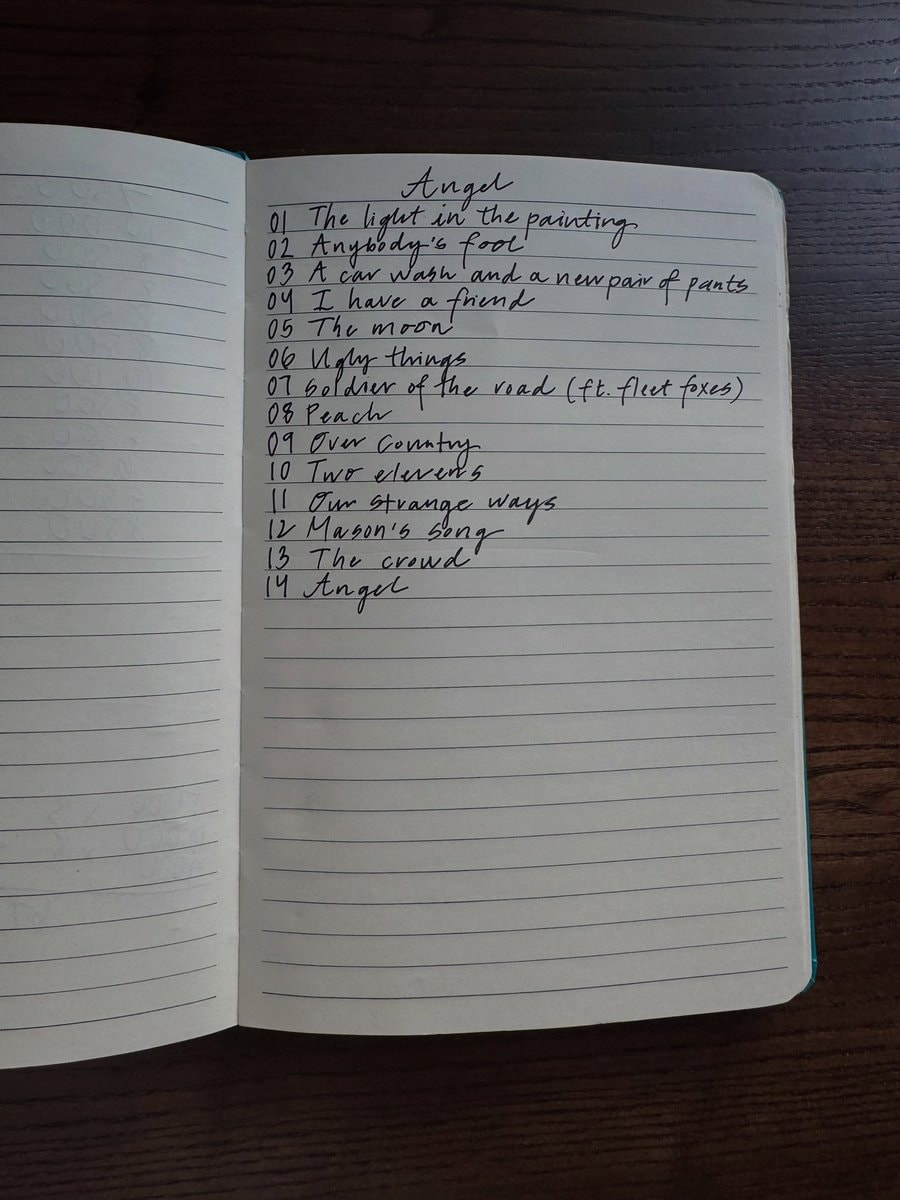 Angel
01 The light in the painting
02 Anybody's fool
03 A car wash and a new pair of pants
04 I have a friend
05 The moon
06 Ugly things
07 soldier of the road (ft. fleet foxes)
08 Peach
09 Over Country
10 Two elevens
11 Our strange ways
12 Mason's song
13 The crowd
14 Angel